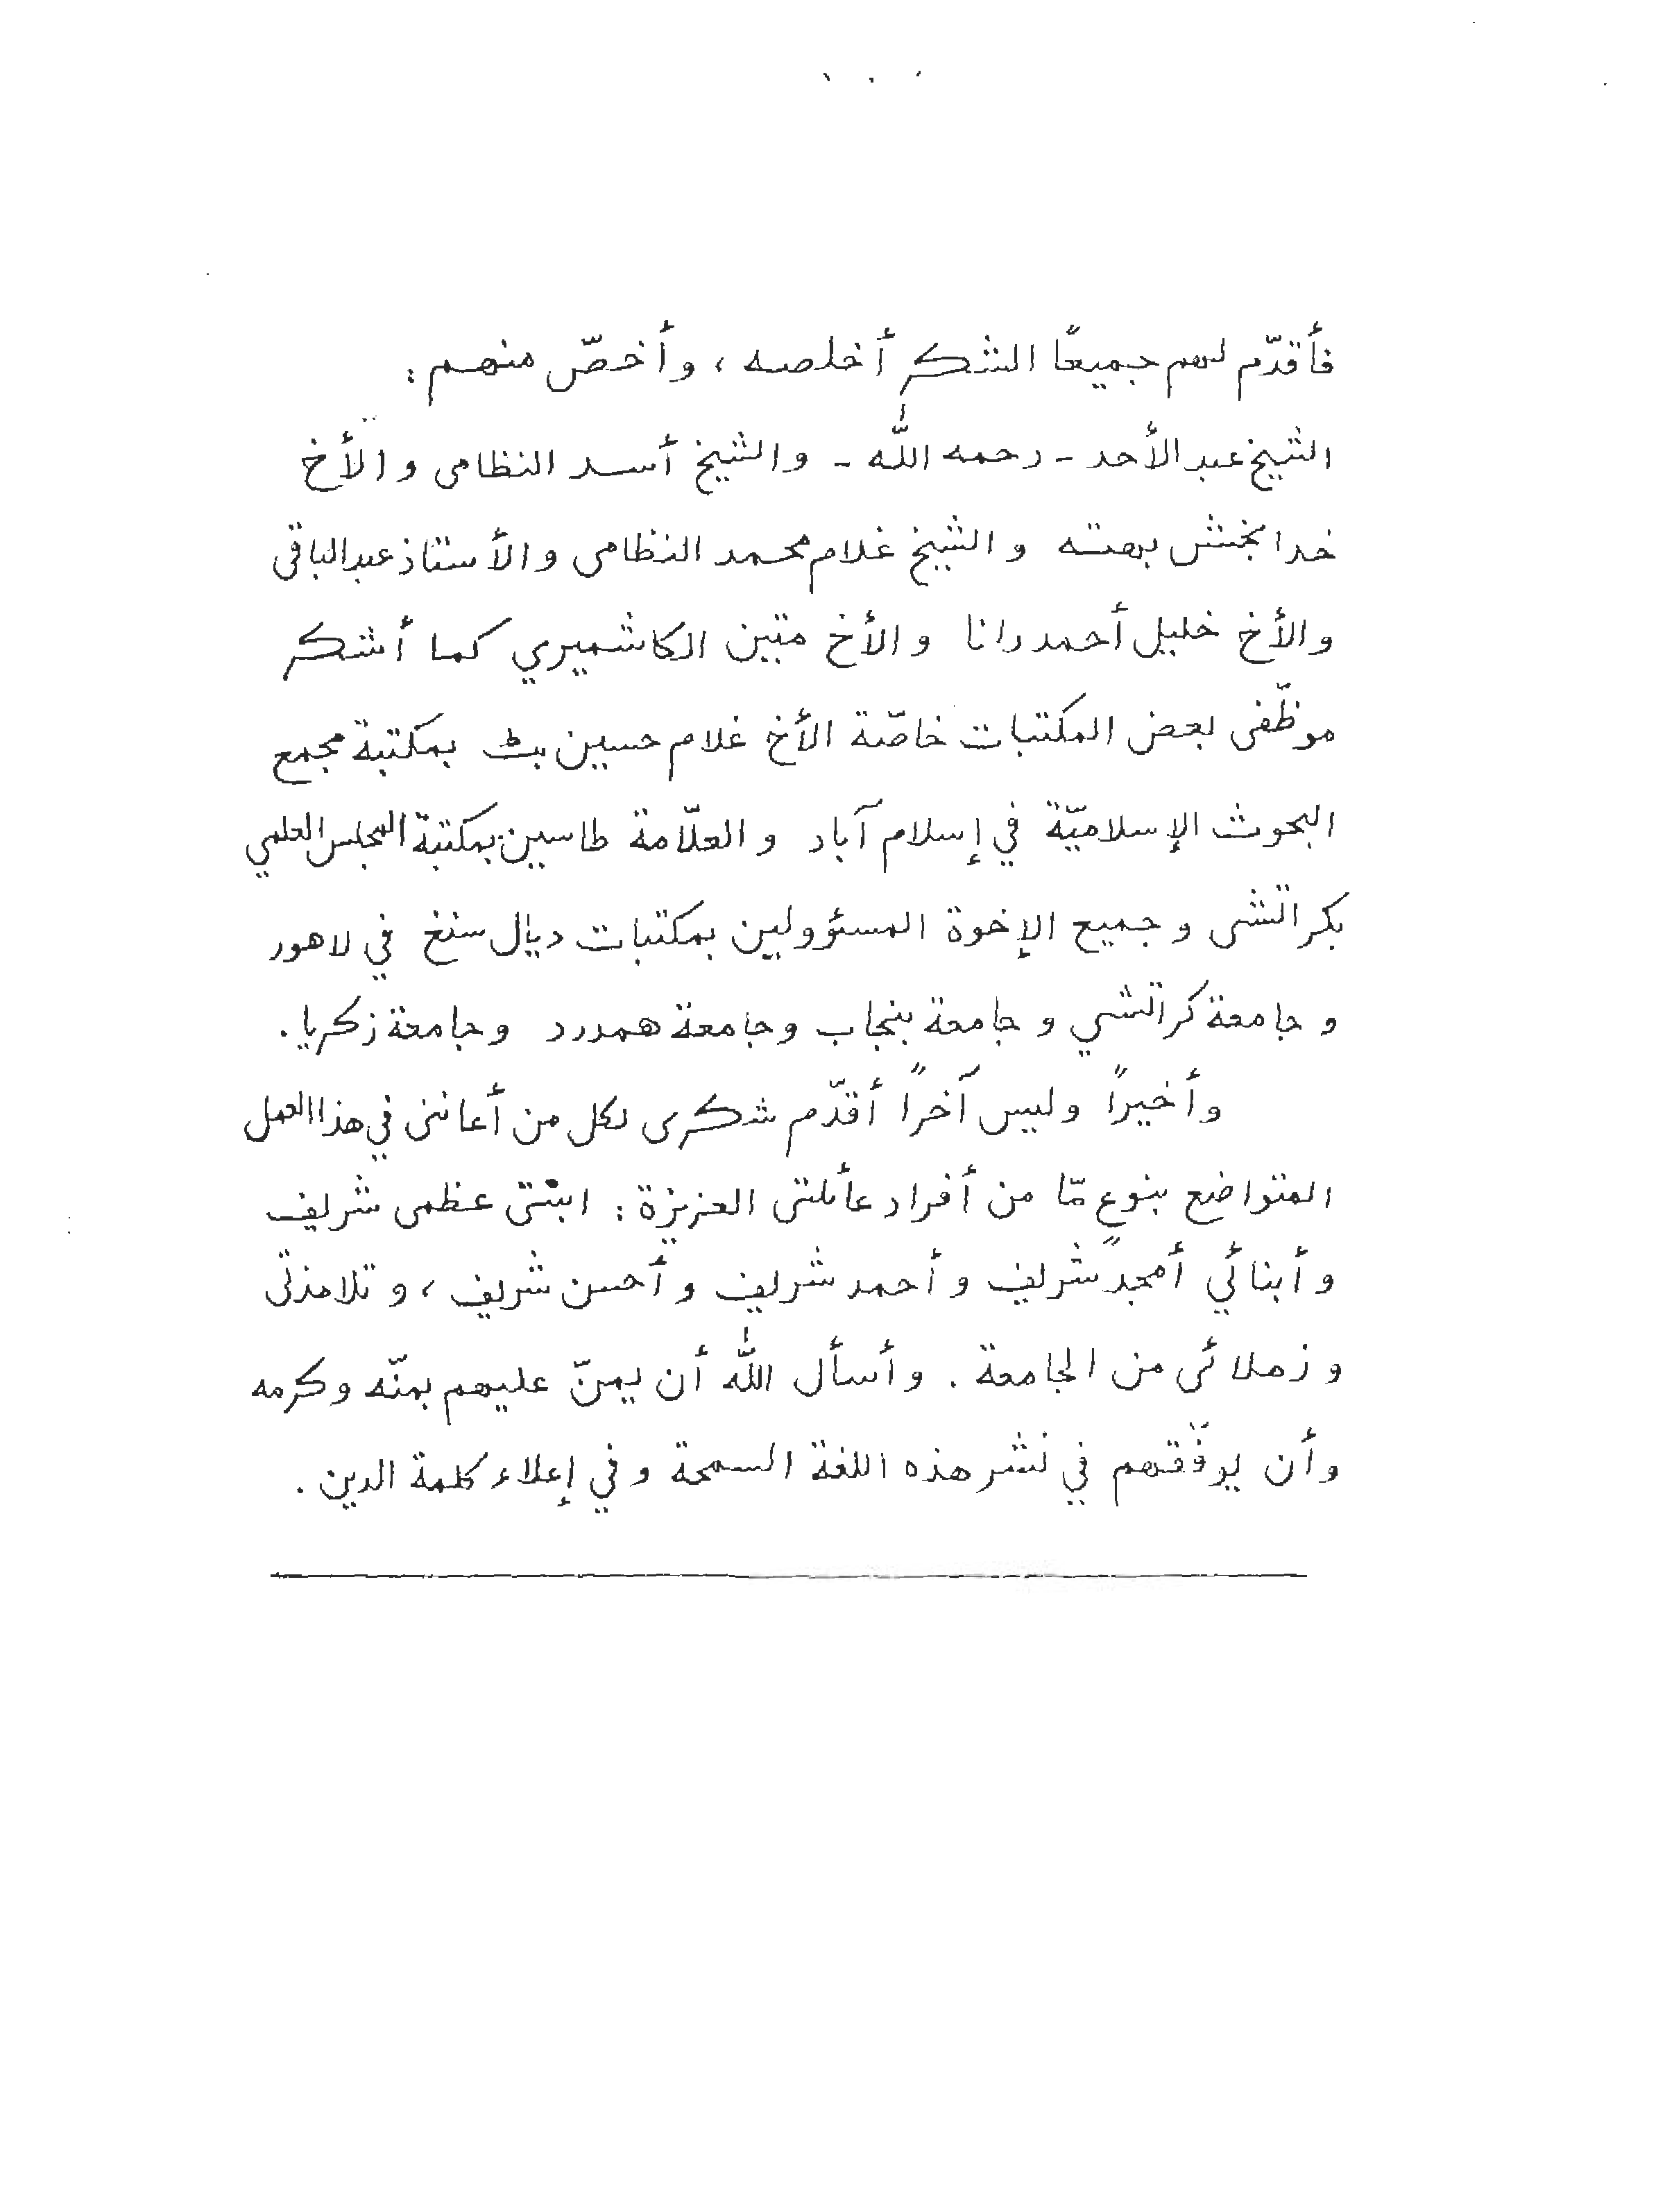 فأقدّم لهم جميعًا الشكر أخلصه ، وأخصّ منهم :
الشيخ عبد الأحد - رحمه اللّٰه - والشيخ أسد النظامى والأخ
خدا بخش بهته والشيخ غلام محمد النظامى والأستاذ عبد الباقى
والأخ خليل أحمد رانا والأخ متين الكاشميري كما أشكر
موظّفى بعض المكتبات خاصّة الأخ غلام حسين بٹ بمكتبة مجمع
البحوث الإسلاميّة في إسلام آباد والعلّامة طاسين بمكتبة المجلس العلمي
بكراتشى وجميع الإخوة المسئوولين بمكتبات ديال سنغ في لاهور
وجامعة كراتشي وجامعة بنجاب وجامعة همدرد وجامعة زكريا .
وأخيراً وليس آخراً أقدّم شكرى لكل من أعاننى في هذا العمل
المتواضع بنوعٍ مّا من أفراد عأىلتى العزيزة : ابنتى عظمى شريف
وأبنائي أمجد شريف وأحمد شريف وأحسن شريف ، وتلامذتى
وزملائى من الجامعة . وأسأل اللّٰه أن يمنّ عليهم بمنّه وكرمه
وأن يوفّقهم في نشر هذه اللغة السمحة وفي إعلاء كلمة الدين .